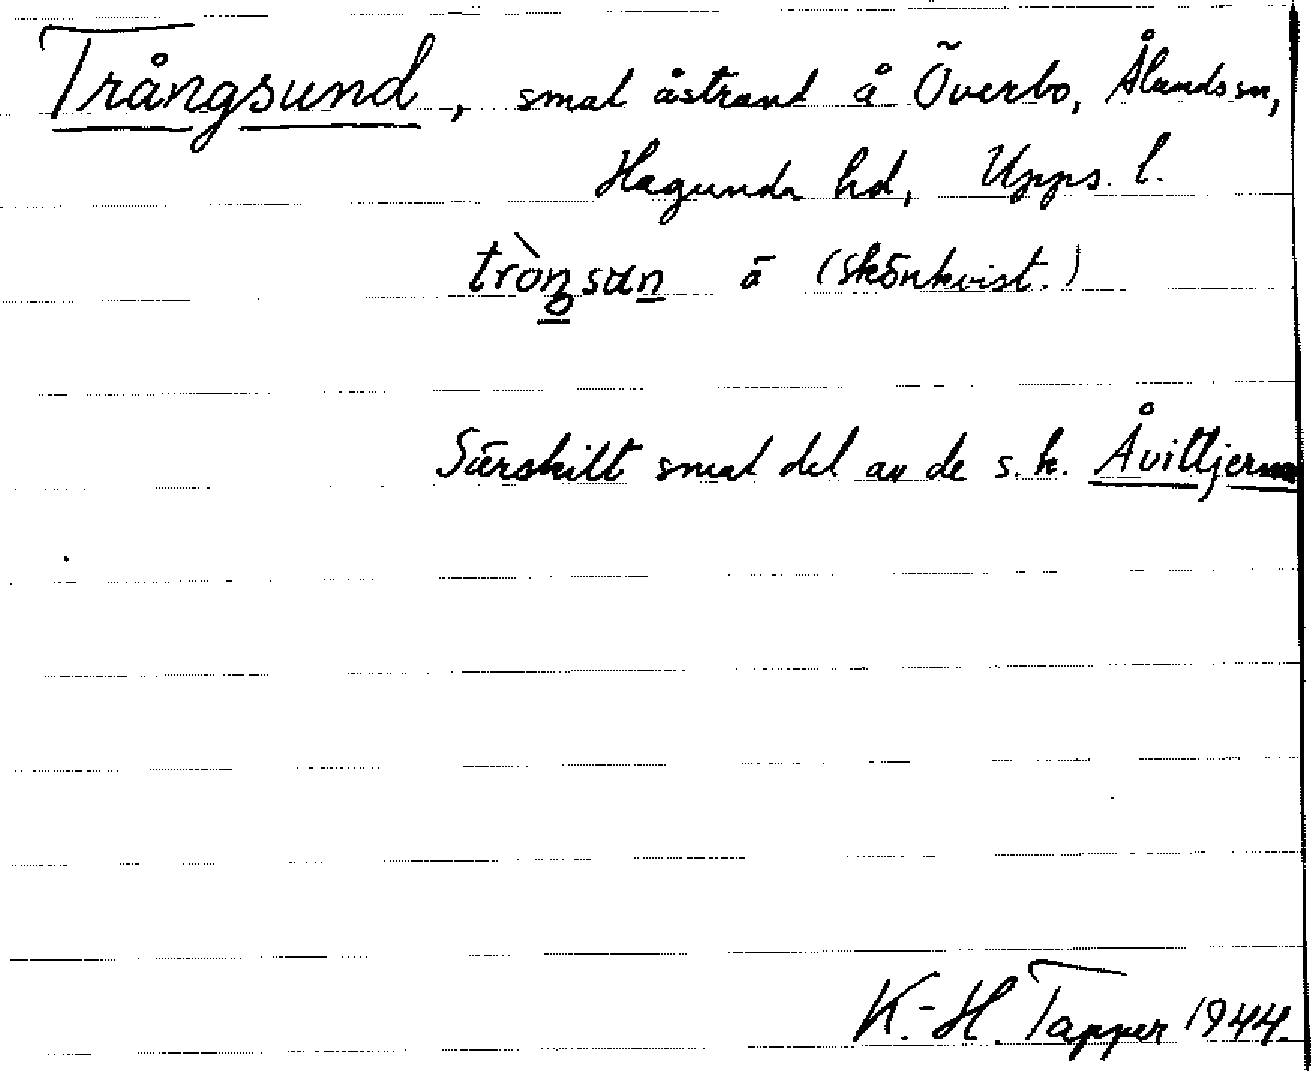 Trångsund, smal åstrand å Överbo, Ålands sn,
Hagunda hd, Upps. l.
tròŋsun å (Skönkvist.)
Särskilt smal del av de s.k. Åvilljerna
K.-H. Tapper 1944.